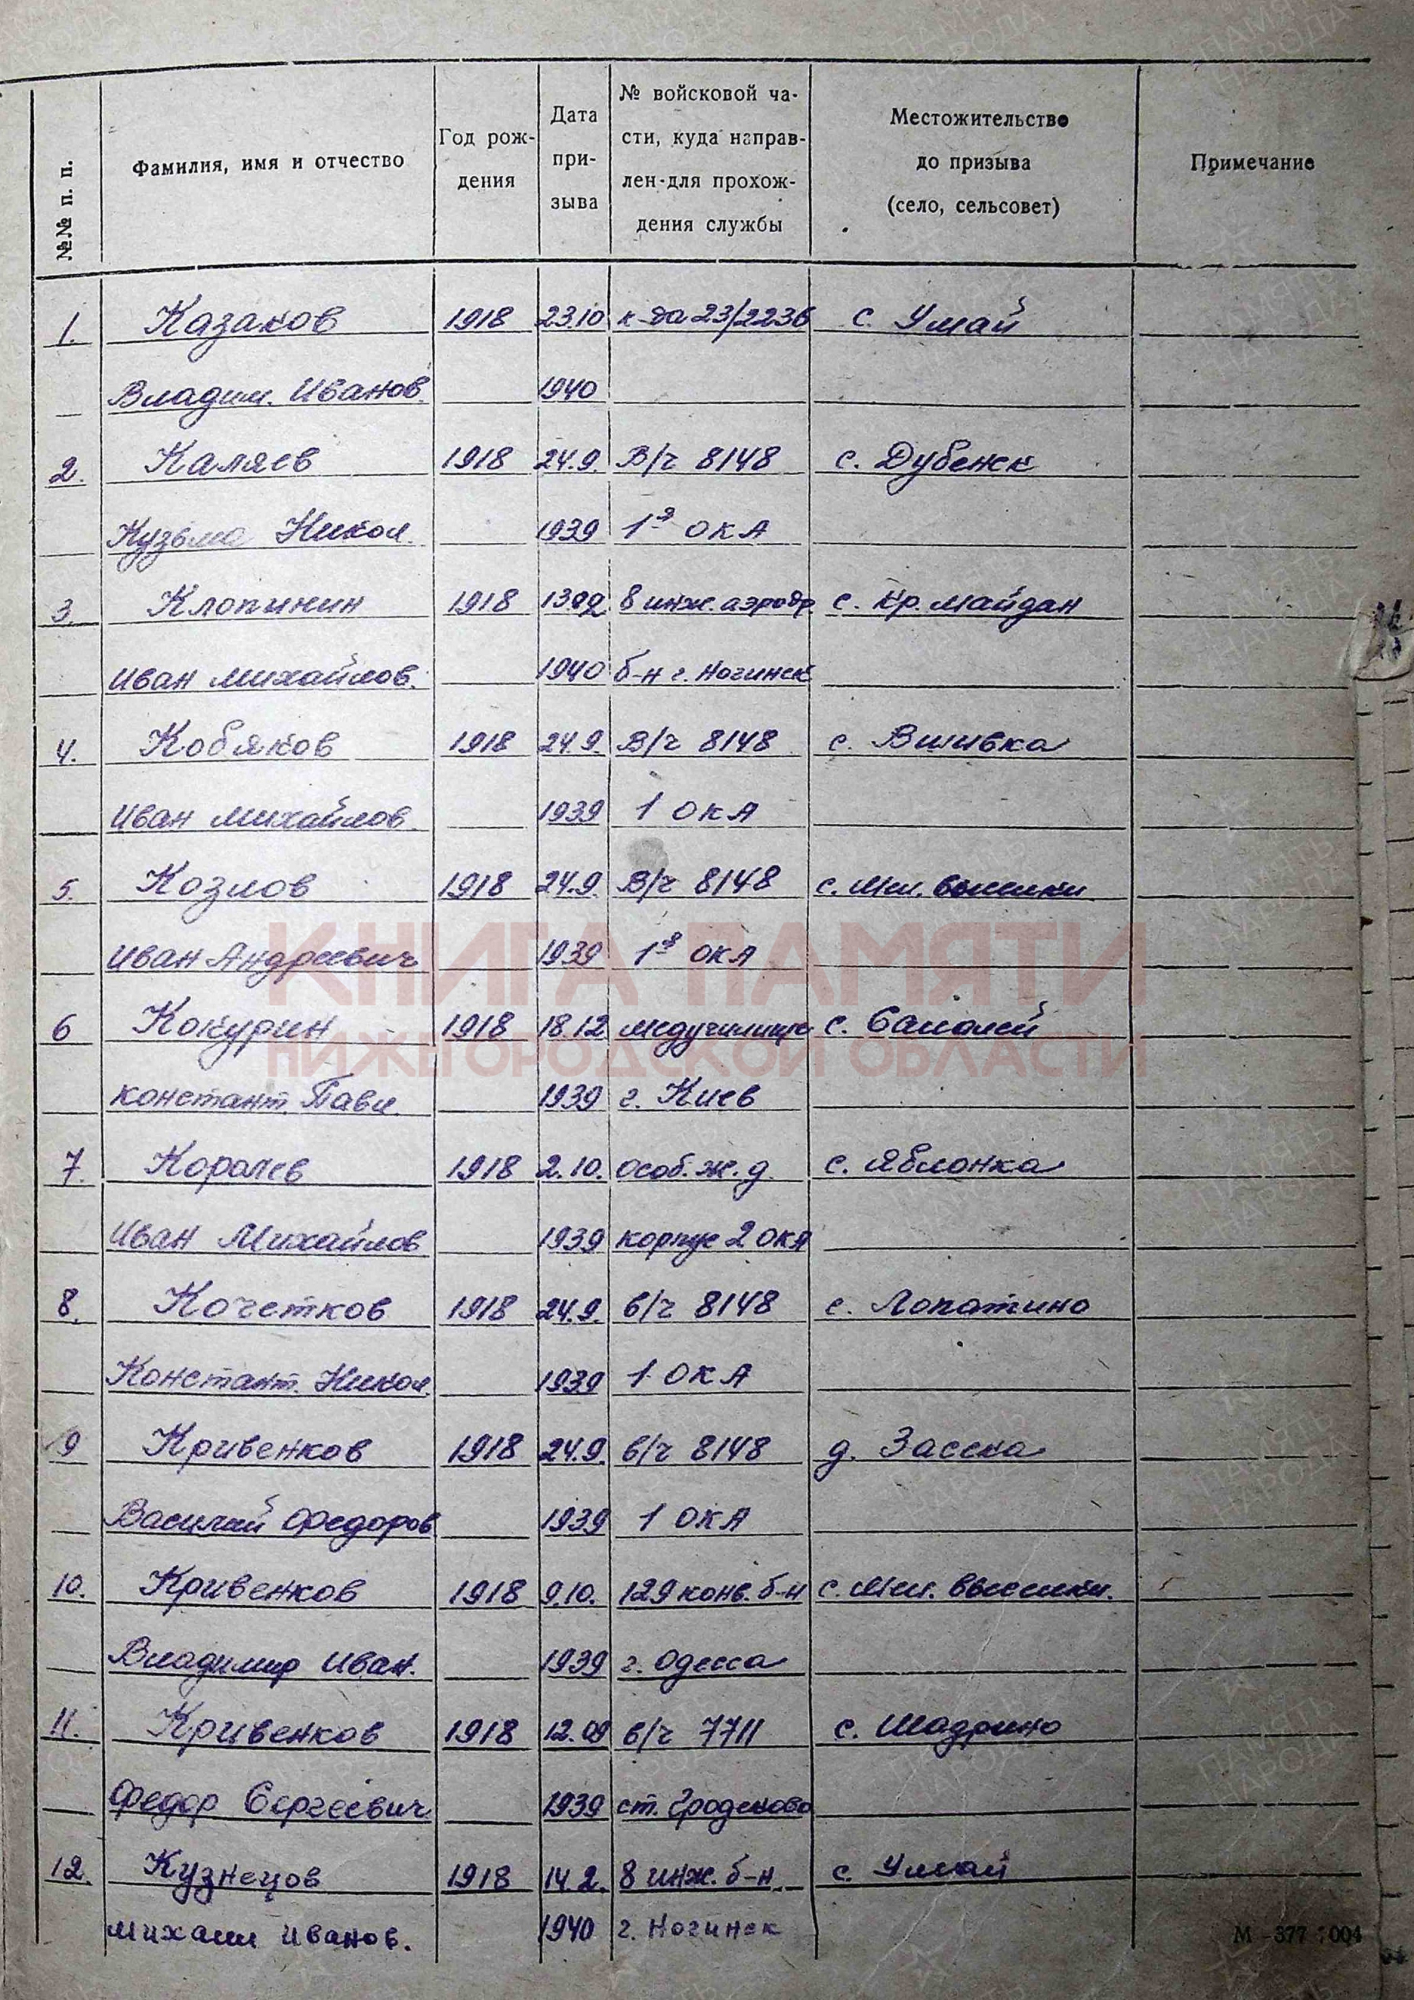 №№ п. п.
Фамилия, имя и отчество
Год рож-
дения
Дата
при-
зыва
№ войсковой ча-
сти, куда направ-
лен для прохож-
дения службы
Местожительство
до призыва
(село, сельсовет)
Примечание
1. Казаков 1918 23.10 к-да 23/2236 с. Умай
Владим. Иванов. 1940
2. Каляев 1918 24.9 В/ч 8148 с. Дубенск
Кузьма Никол. 1939 1я ОКА
3. Клопинин 1918 8 инж. аэродр с. Кр. Майдан
Иван Михайлов. 1940 б-н г. Ногинск
4. Кобяков 1918 24.9. В/ч 8148 с. Вшивка
Иван Михайлов. 1939 1 ОКА
5. Козлов 1918 24.9. В/ч 8148 с. Мл. выселки
Иван Андреевич 1939 1я ОКА
КНИГА ПАМЯТИ
НИЖЕГОРОДСКОЙ ОБЛАСТИ
6 Кокурин 1918 18.12 медучилище с. Саколей
Констант. Павл. 1939 г. Киев
7. Королев 1918 2.10. особ. ж.д. с. Яблонка
Иван Михайлов 1939 корпус 2 ОКА
8. Кочетков 1918 24.9. в/ч 8148 с. Лопатино
Констант. Никол. 1939 1 ОКА
9 Кривенков 1918 24.9. в/ч 8148 д. Засека
Василий Федоров 1939 1 ОКА
10. Кривенков 1918 9.10. 129 конв. б-н с. Мл. выселки.
Владимир Иван. 1939 г. Одесса
11. Кривенков 1918 12.09 в/ч 7711 с. Шадрино
Федор Сергеевич 1939 ст. Гродеково
12. Кузнецов 1918 14.2. 8 инж. б-н с. Умай
Михаил Иванов. 1940 г. Ногинск
ПАМЯТЬ НАРОДА